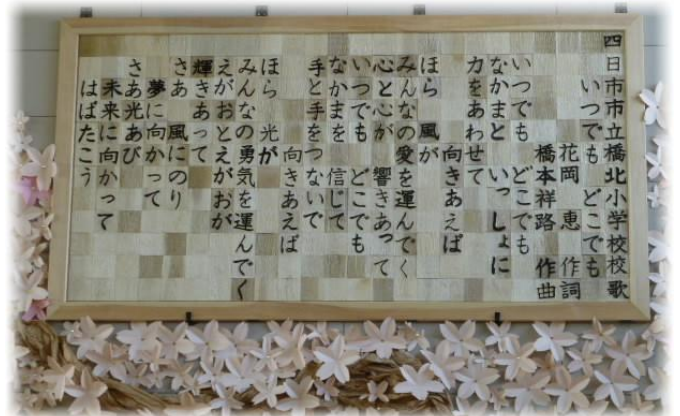 四日市市立橋北小学校校歌
いつでも どこでも
花岡 恵 作詞
橋本祥路 作曲
いつでも どこでも
なかまと いっしょに
力をあわせて
向きあえば
ほら 風が
みんなの愛を運んでく
心と心が 響きあって
いつでも どこでも
なかまを 信じて
手と手をつないで
向きあえば
ほら 光が
みんなの勇気を運んでく
えがおとえがおが
輝きあって
さあ 風にのり
夢に向かって
さあ光あび
未来に向かって
はばたこう